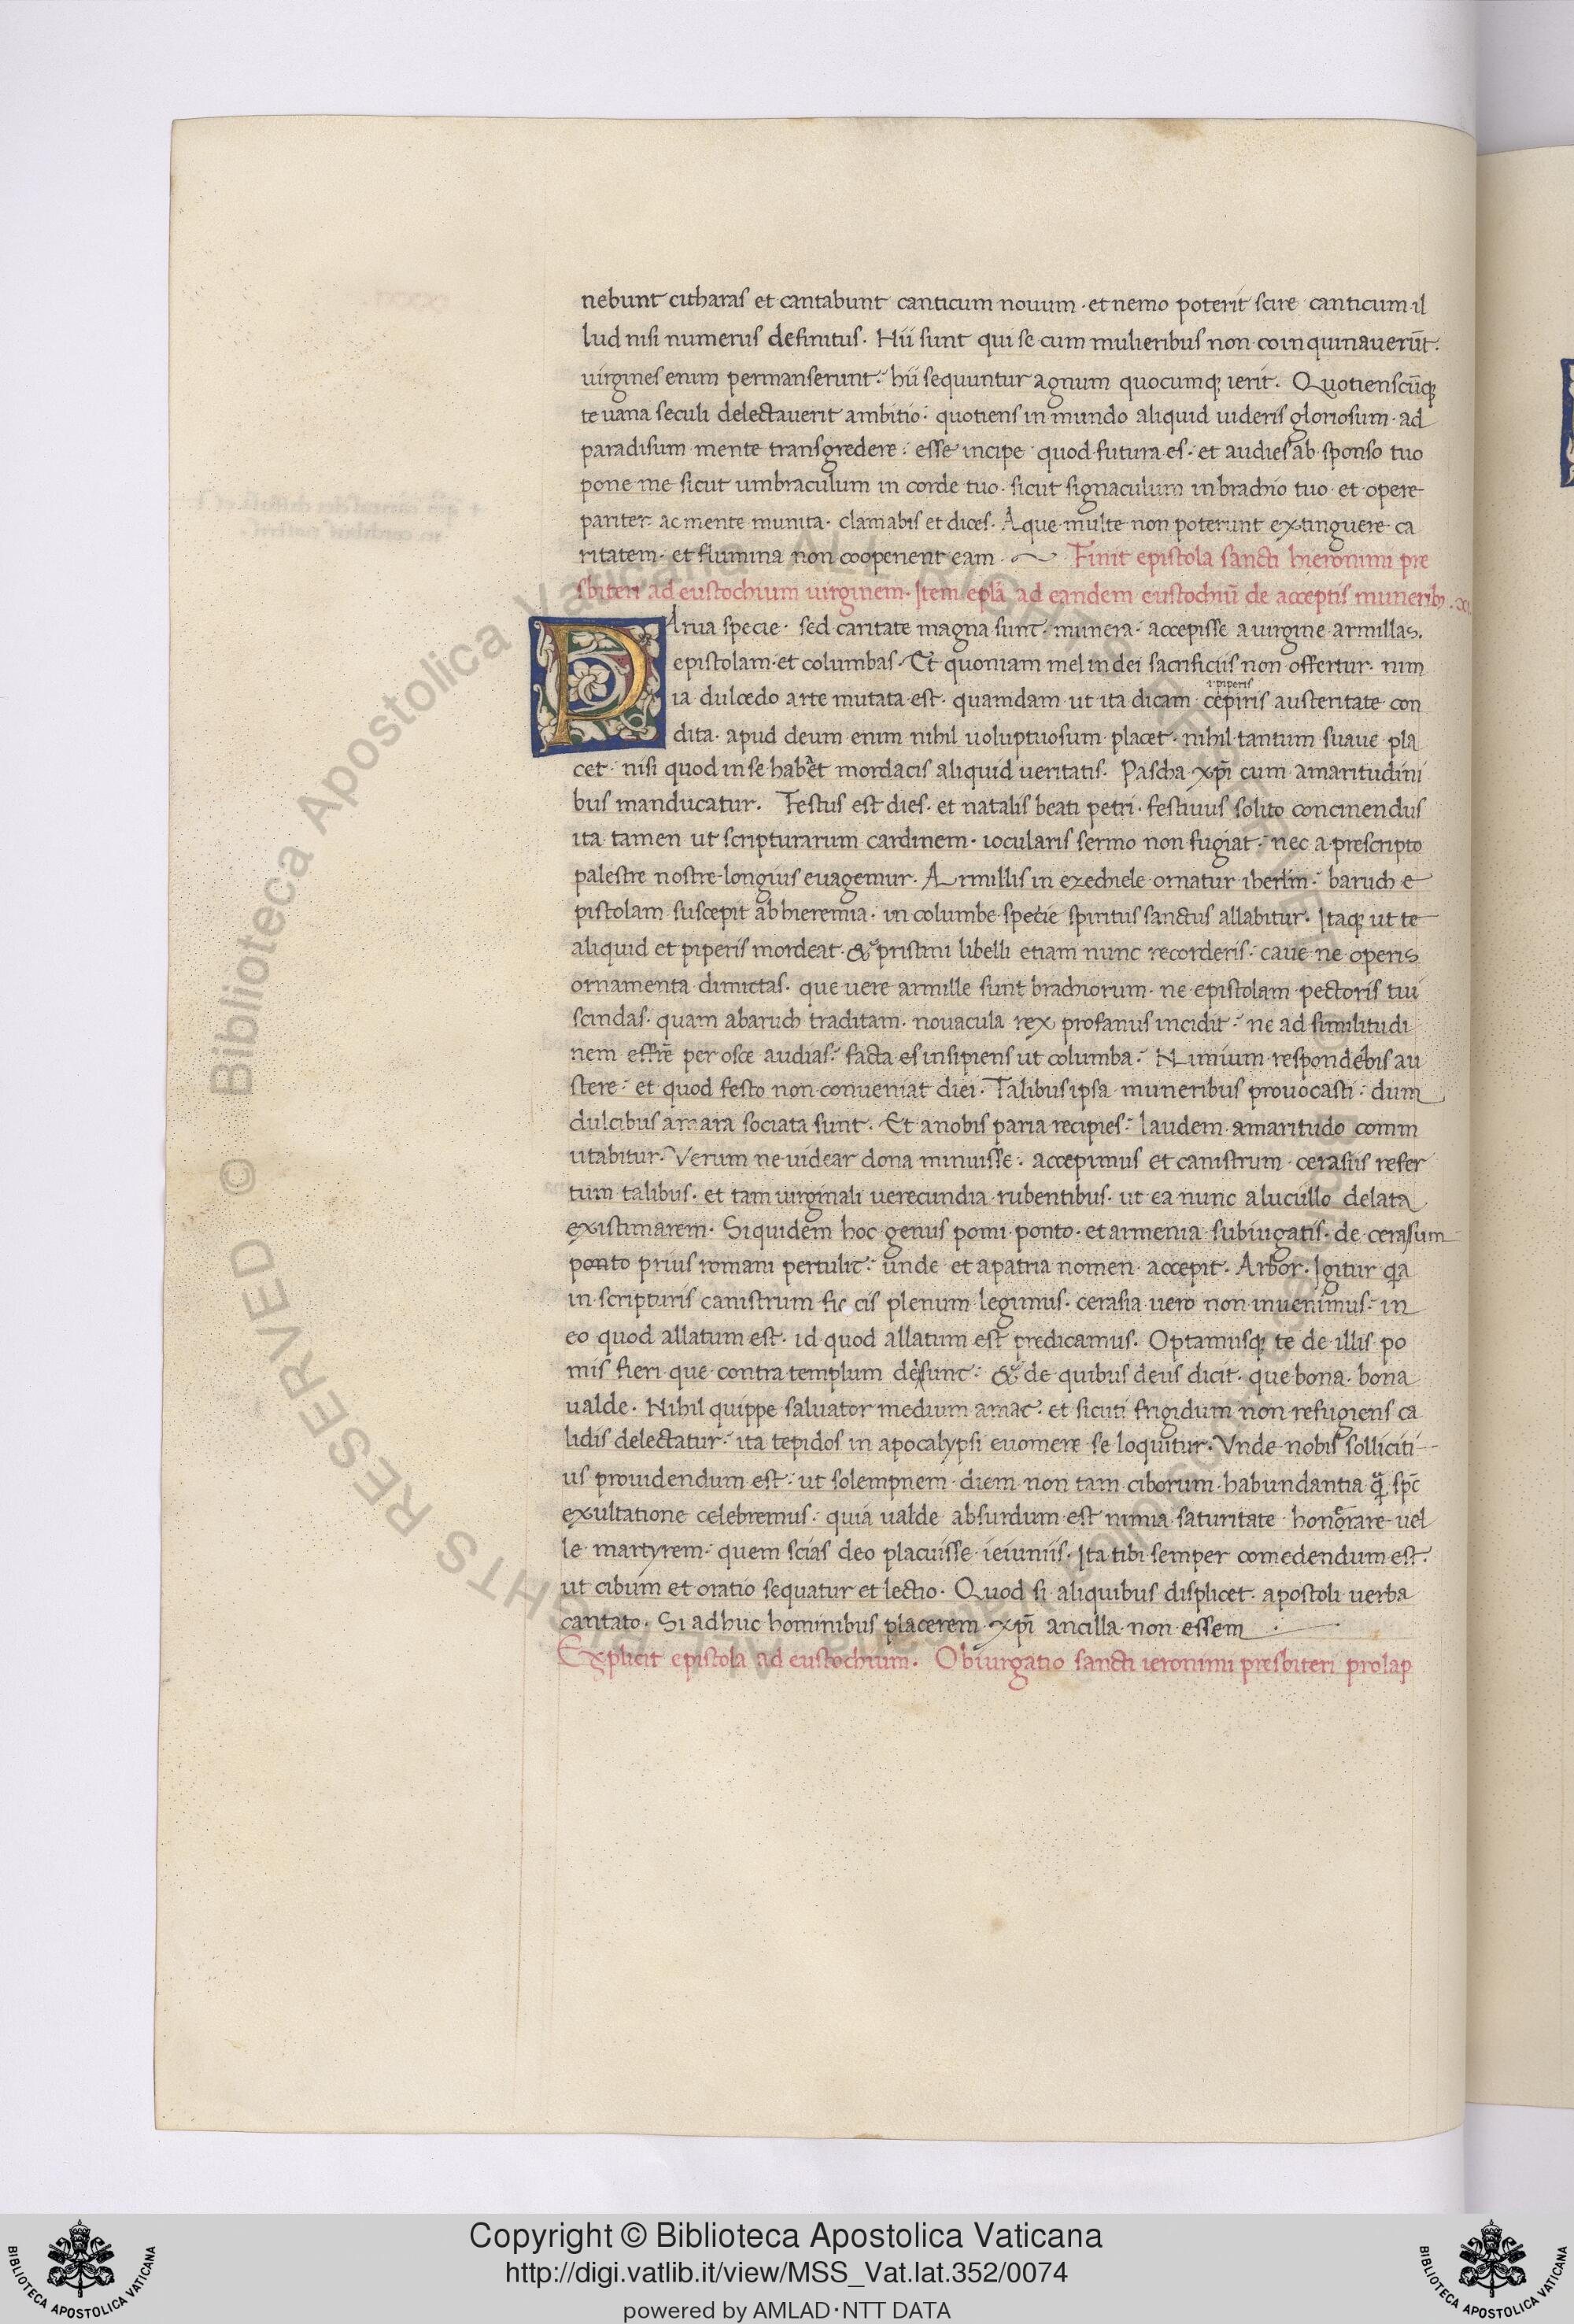 nebunt citharas et cantabunt canticum nouum · et nemo poterit scire canticum il
lud nisi numerus definitus. Hii sunt qui se cum mulieribus non coinquinauerūt.
uirgines enim permanserunt: hii sequuntur agnum quocumq; ierit. Quotienscūq;
te uana seculi delectauerit ambitio: quotiens in mundo aliquid uideris gloriosum · ad
paradisum mente transgredere: esse incipe quod futura es: et audies ab sponso tuo
pone me sicut umbraculum in corde tuo · sicut signaculum in brachio tuo · et opere
pariter ac mente munita · clamabis et dices. Aque multe non poterunt extinguere ca
ritatem · et flumina non cooperient eam · Finit epistola sancti hieronimi pre
sbiteri ad eustochium uirginem. Item eplā ad eandem eustochiū de acceptis munerib;
PArua specie · sed caritate magna sunt · munera · accepisse a uirgine armillas.
epistolam · et columbas. Et quoniam mel in dei sacrificiis non offertur · nim
piperis
ia dulcedo arte mutata est · quamdam ut ita dicam cepiris austeritate con
dita · apud deum enim nihil uoluptuosum placet · nihil tantum suaue pla
cet · nisi quod in se habet mordacis aliquid ueritatis. Pascha xp̄i cum amaritudini
bus manducatur. Festus est dies · et natalis beati petri · festiuus solito concinendus
ita tamen ut scripturarum cardinem · iocularis sermo non fugiat: nec a prescripto
palestre nostre longius euagemur. Armillis in ezechiele ornatur iherlm̄: baruch e
pistolam suscepit ab hieremia · in columbe specie spiritus sanctus allabitur. Itaq; ut te
aliquid et piperis mordeat · & pristini libelli etiam nunc recorderis: caue ne operis
ornamenta dimittas · que uere armille sunt brachiorum · ne epistolam pectoris tui
scindas · quam a baruch traditam · nouacula rex profanus incidit: ne ad similitudi
nem effrē per osce audias: facta es insipiens ut columba: Nimium respondebis au
stere: et quod festo non conueniat diei. Talibus ipsa muneribus prouocasti: dum
dulcibus amara sociata sunt. Et a nobis paria recipies: laudem amaritudo comm
utabitur. Verum ne uidear dona minuisse: accepimus et canistrum cerasiis refer
tum talibus · et tam uirginali uerecundia rubentibus · ut ea nunc a lucullo delata
existimarem. Siquidem hoc genus pomi ponto · et armenia subiugatis · de cerasum
ponto prius romani pertulit: unde et a patria nomen accepit. Arbor. Igitur q̄a
in scripturis canistrum fic cis plenum legimus · cerasia uero non inuenimus: in
eo quod allatum est · id quod allatum est predicamus. Optamusq; te de illis po
mis fieri que contra templum dei sunt: & de quibus deus dicit · que bona · bona
ualde. Nihil quippe saluator medium amat · et sicuti frigidum non refugiens ca
lidis delectatur: ita tepidos in apocalypsi euomere se loquitur. Vnde nobis solliciti
us prouidendum est: ut solempnem diem non tam ciborum habundantia q̄ sp̄c
exultatione celebremus: quia ualde absurdum est nimia saturitate honorare uel
le martyrem · quem scias deo placuisse ieiuniis. Ita tibi semper comedendum est ·
ut cibum et oratio sequatur et lectio. Quod si aliquibus displicet · apostoli uerba
cantato. Si adhuc hominibus placerem · xp̄i ancilla non essem
Explicit epistola ad eustochium. Obiurgatio sancti ieronimi presbiteri prolap
Copyright © Biblioteca Apostolica Vaticana
http://digi.vatlib.it/view/MSS_Vat.lat.352/0074
powered by AMLAD·NTT DATA
BIBLIOTECA APOSTOLICA VATICANA
BIBLIOTECA APOSTOLICA VATICANA